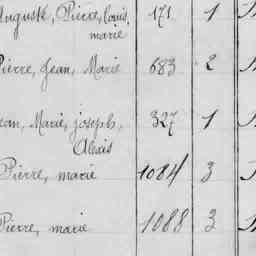 Auguste, Pierre, Louis, 171 1
marie
Pierre, Jean, Marie 683 2
Jean, Marie, joseph, 327 1
Alexis
Pierre, marie 1084 3
Pierre, marie 1088 3